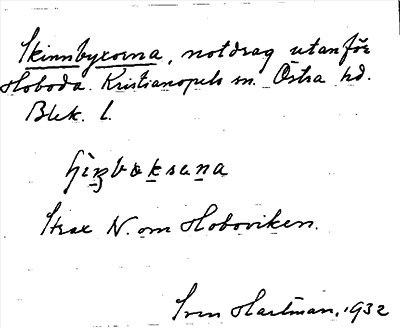 Skinnbyxorna, notdrag utanför
Hoboda. Kristianopels sn. Östra hd.
Blek. l.
Strax N. om Hoboviken.
Sven Hartman, 1932